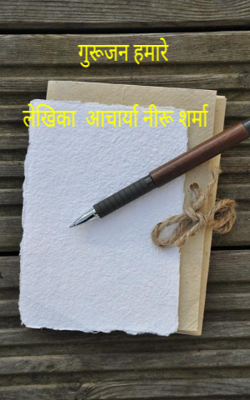 गुरूजन हमारे
लेखिका आचार्या नीरू शर्मा